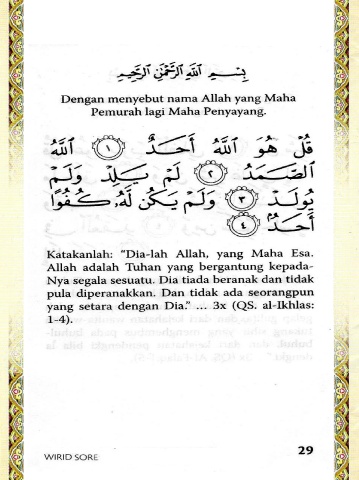 بِسْمِ اللَّهِ الرَّحْمَٰنِ الرَّحِيمِ
Dengan menyebut nama Allah yang Maha
Pemurah lagi Maha Penyayang.
قُلْ هُوَ اللَّهُ أَحَدٌ ﴿١﴾ اللَّهُ
الصَّمَدُ ﴿٢﴾ لَمْ يَلِدْ وَلَمْ
يُولَدْ ﴿٣﴾ وَلَمْ يَكُن لَّهُ كُفُوًا
أَحَدٌ ﴿٤﴾
Katakanlah: “Dia-lah Allah, yang Maha Esa.
Allah adalah Tuhan yang bergantung kepada-
Nya segala sesuatu. Dia tiada beranak dan tidak
pula diperanakkan. Dan tidak ada seorangpun
yang setara dengan Dia.” ... 3x (QS. al-Ikhlas:
1-4).
WIRID SORE 29